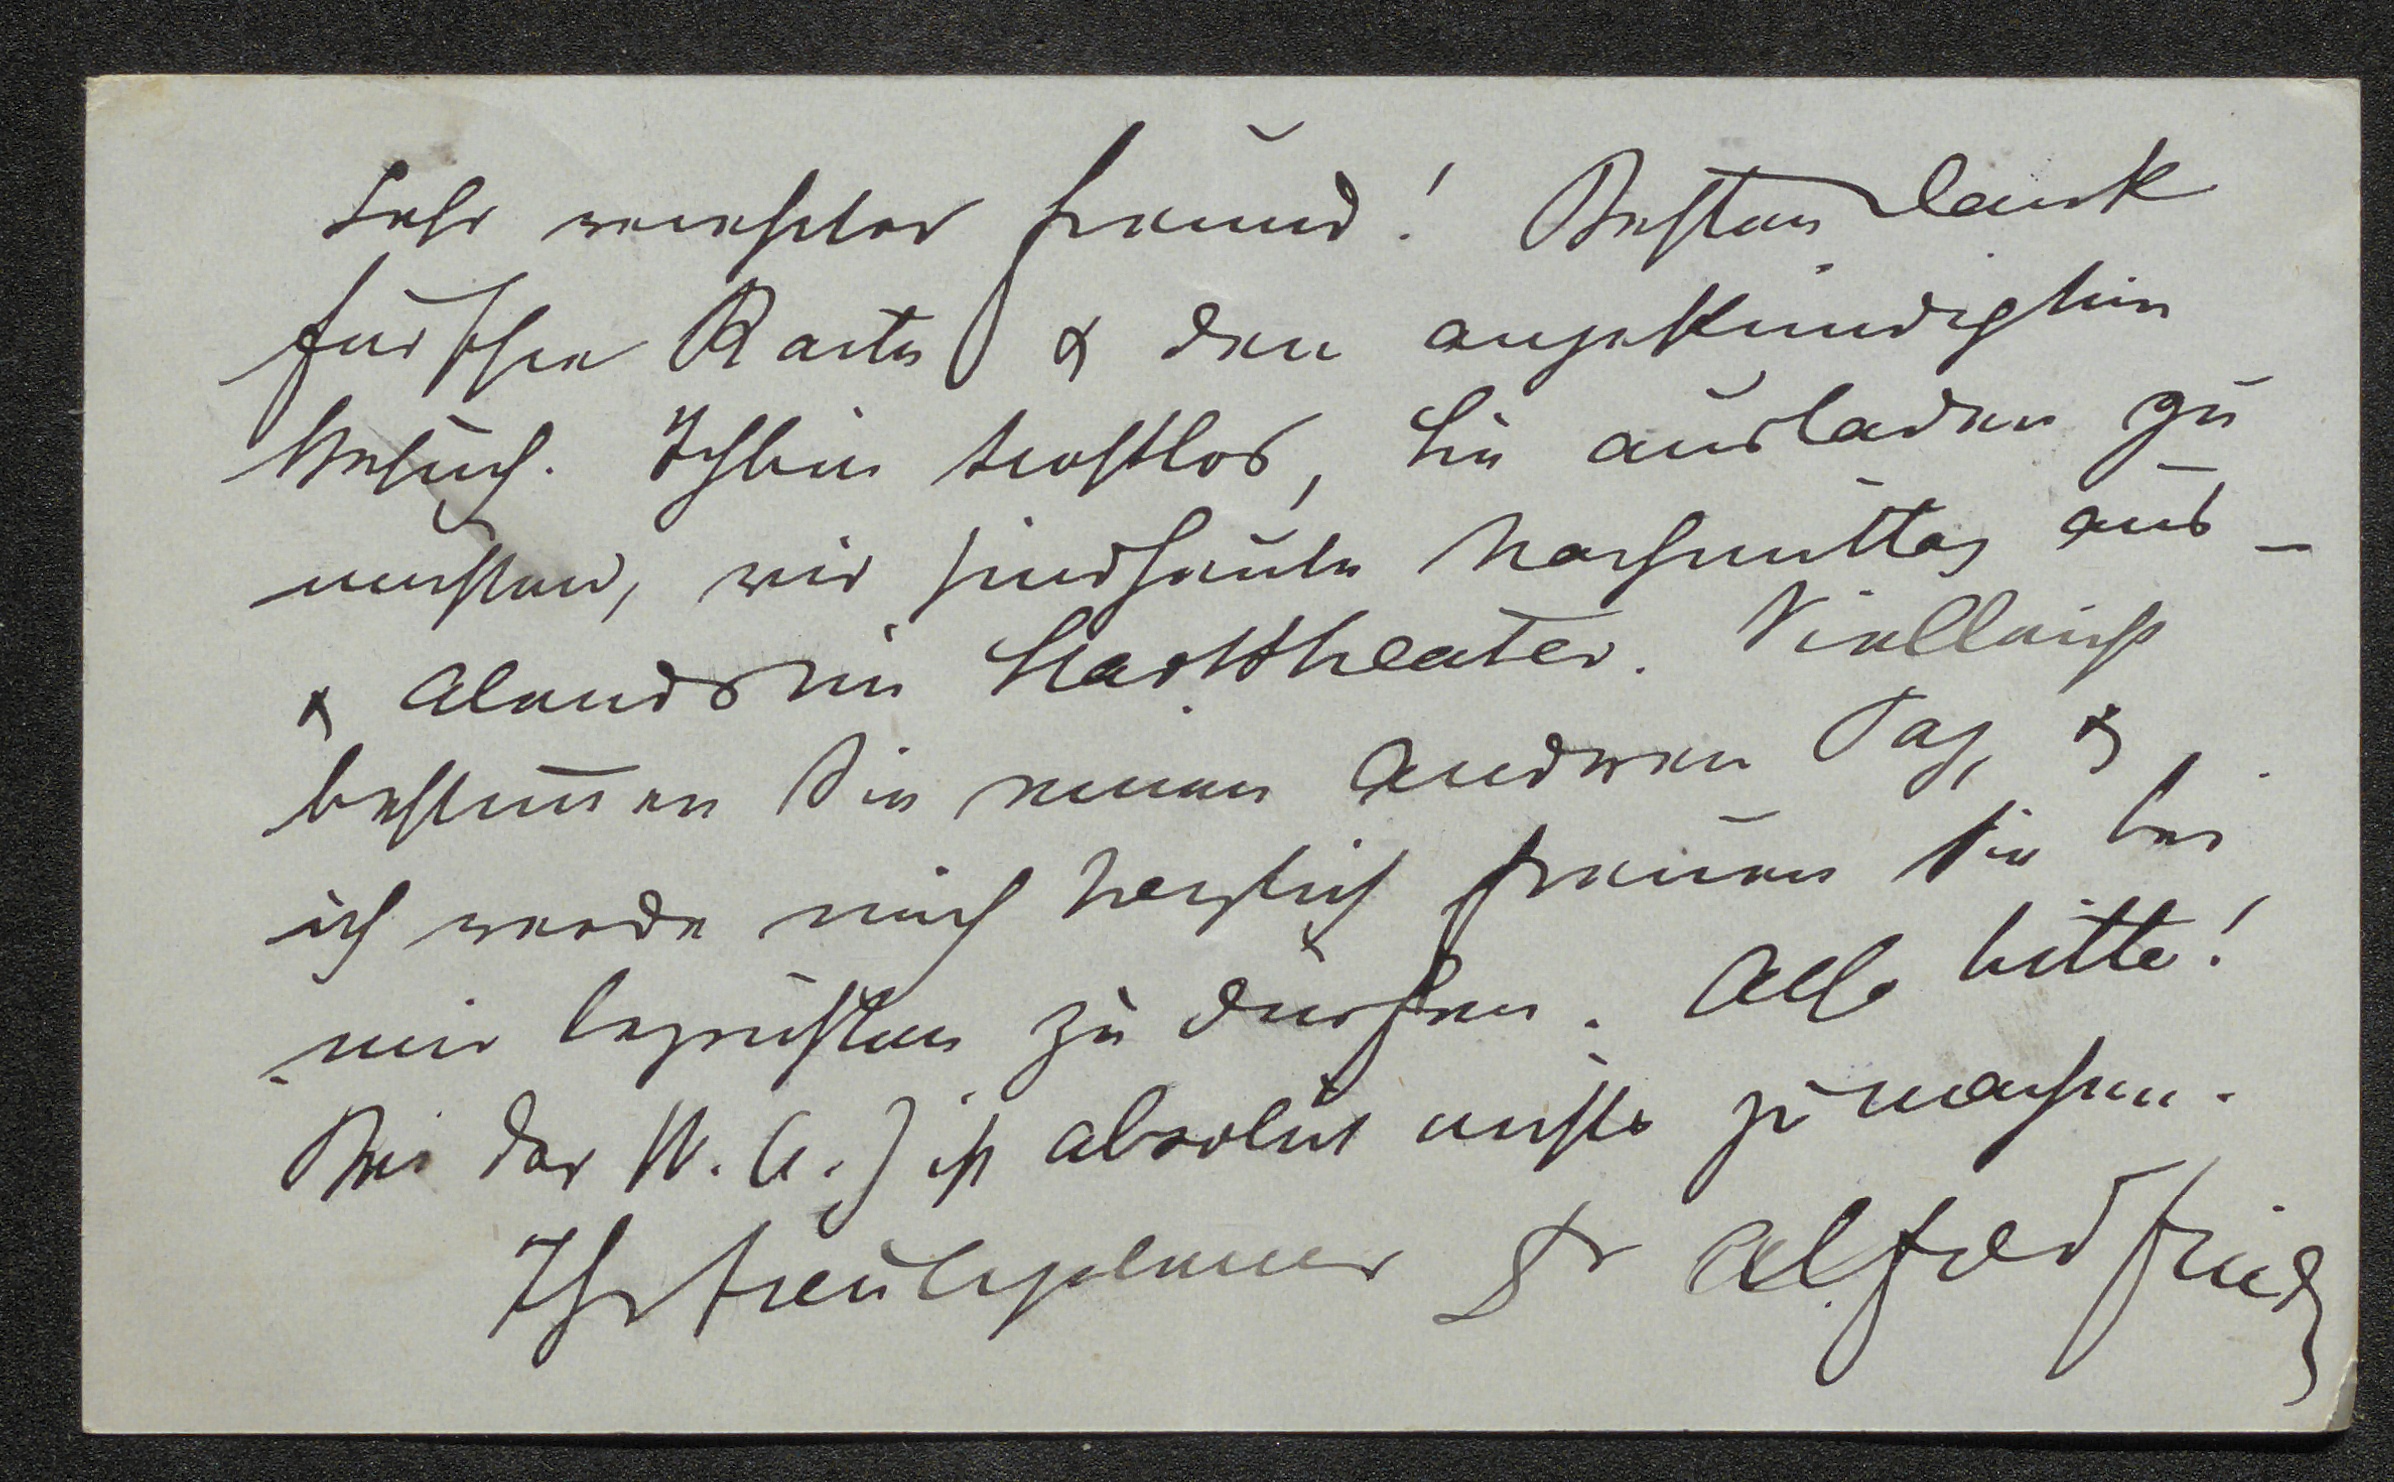 Sehr verehrter Freund! Besten Dank
für Ihre Karte & den angekündigten
Besuch. Ich bin trostlos, Sie ausladen zu
müssen, wir sind heute Nachmittag aus –
& abends im Stadttheater. Vielleicht
bestim̅en Sie einen anderen Tag, &
ich werde mich herzlich freuen Sie bei
mir begrüßen zu dürfen. Also bitte!
Bei der W. A. Z ist absolut nichts zu machen.
Ihr treu ergebener Dr Alfred Fried